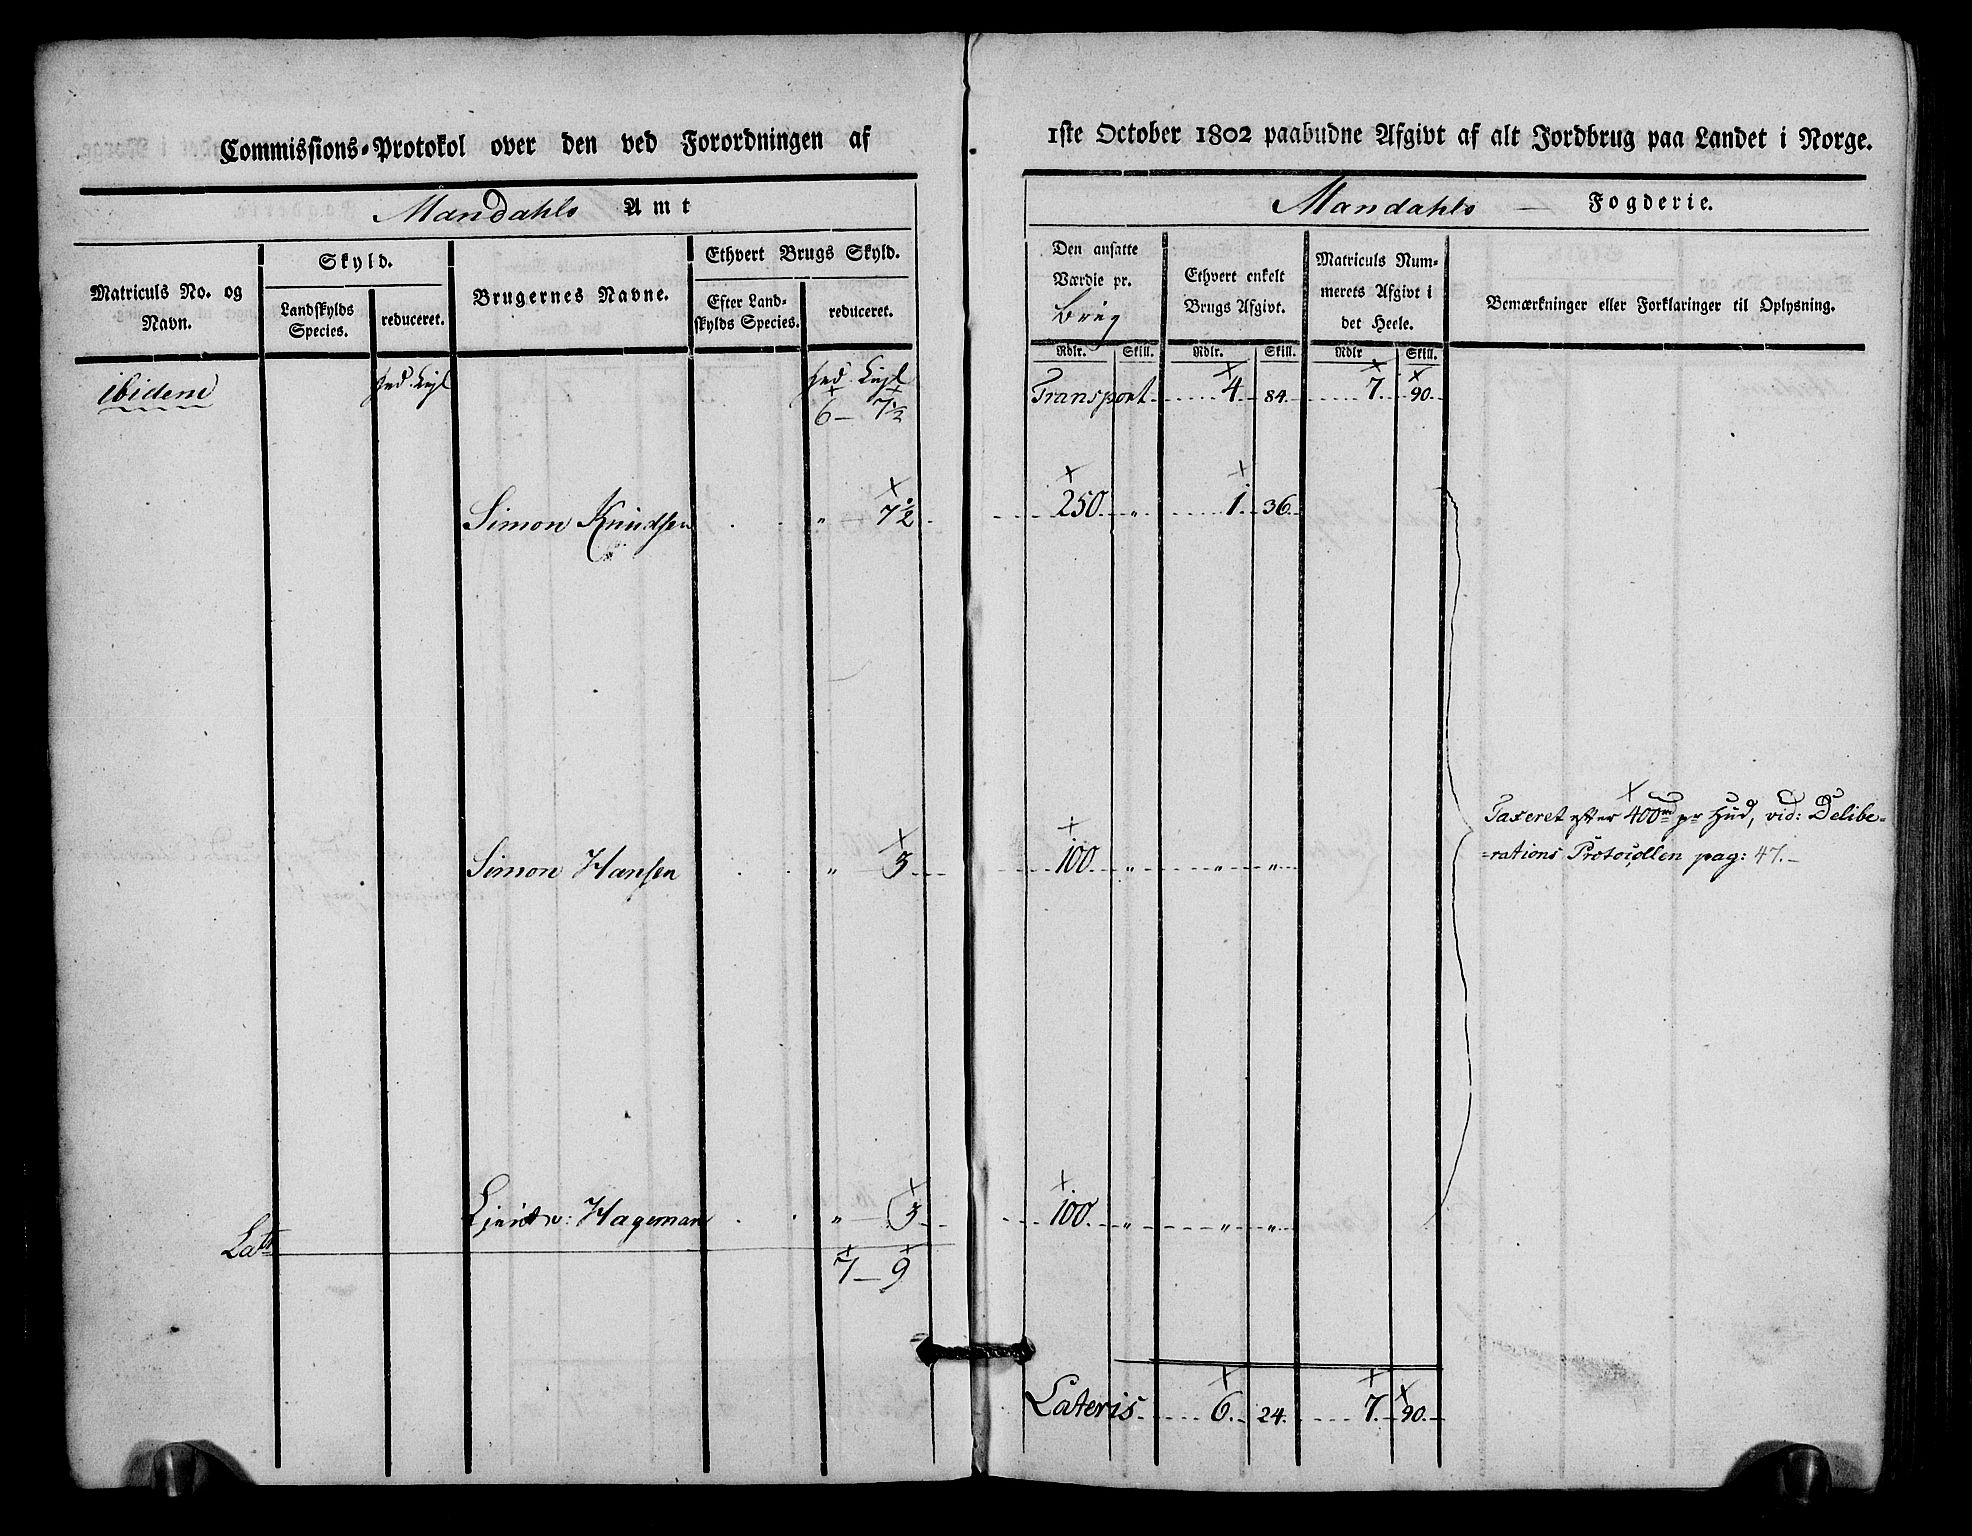 Commissions-Protokol over den ved Forordningen af
Mandahls Amt
Matriculs No. og Navn.
Skyld.
Landskylds Species.
reduceret.
Brugernes Navne.
Ethvert Brugs Skyld.
Efter Landskylds Species.
reduceret.
ibidem
6 – 7½
Simon Knudsen . . " 7½
Simon Hansen . . " 3
v: Hageman . . " 3
Lat:
7 – 9
1ste October 1802 paabudne Afgivt af alt Jordbrug paa Landet i Norge.
Mandahls — Fogderie.
Den ansatte Værdie pr.
Brug
Ethvert enkelt Brugs Afgivt.
Matriculs Nummerets Afgivt i det Heele.
Bemærkninger eller Forklaringer til Oplysning.
Rdlr. Skill. Rdlr. Skill. Rdlr Skill.
Transport 4 84. 7. 90.
250. " 1. 36.
100. " " "
Taxeret efter 400 pr Hud, vid: Delibe-
-rations Protocollen pag: 47.-
100. " " "
Lateris 6. 24. 7. 90.